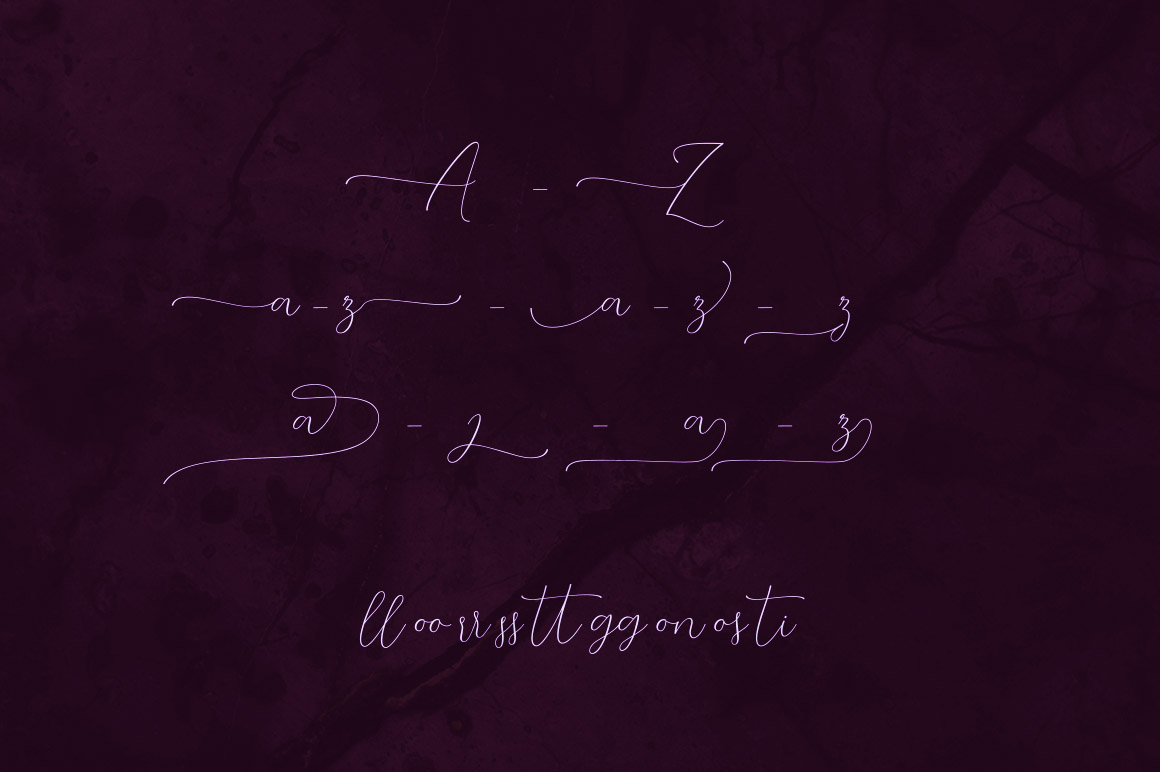 A - Z
a - z - a - z - z
a - z - a - z
ll oo rr ss tt gg on os ti